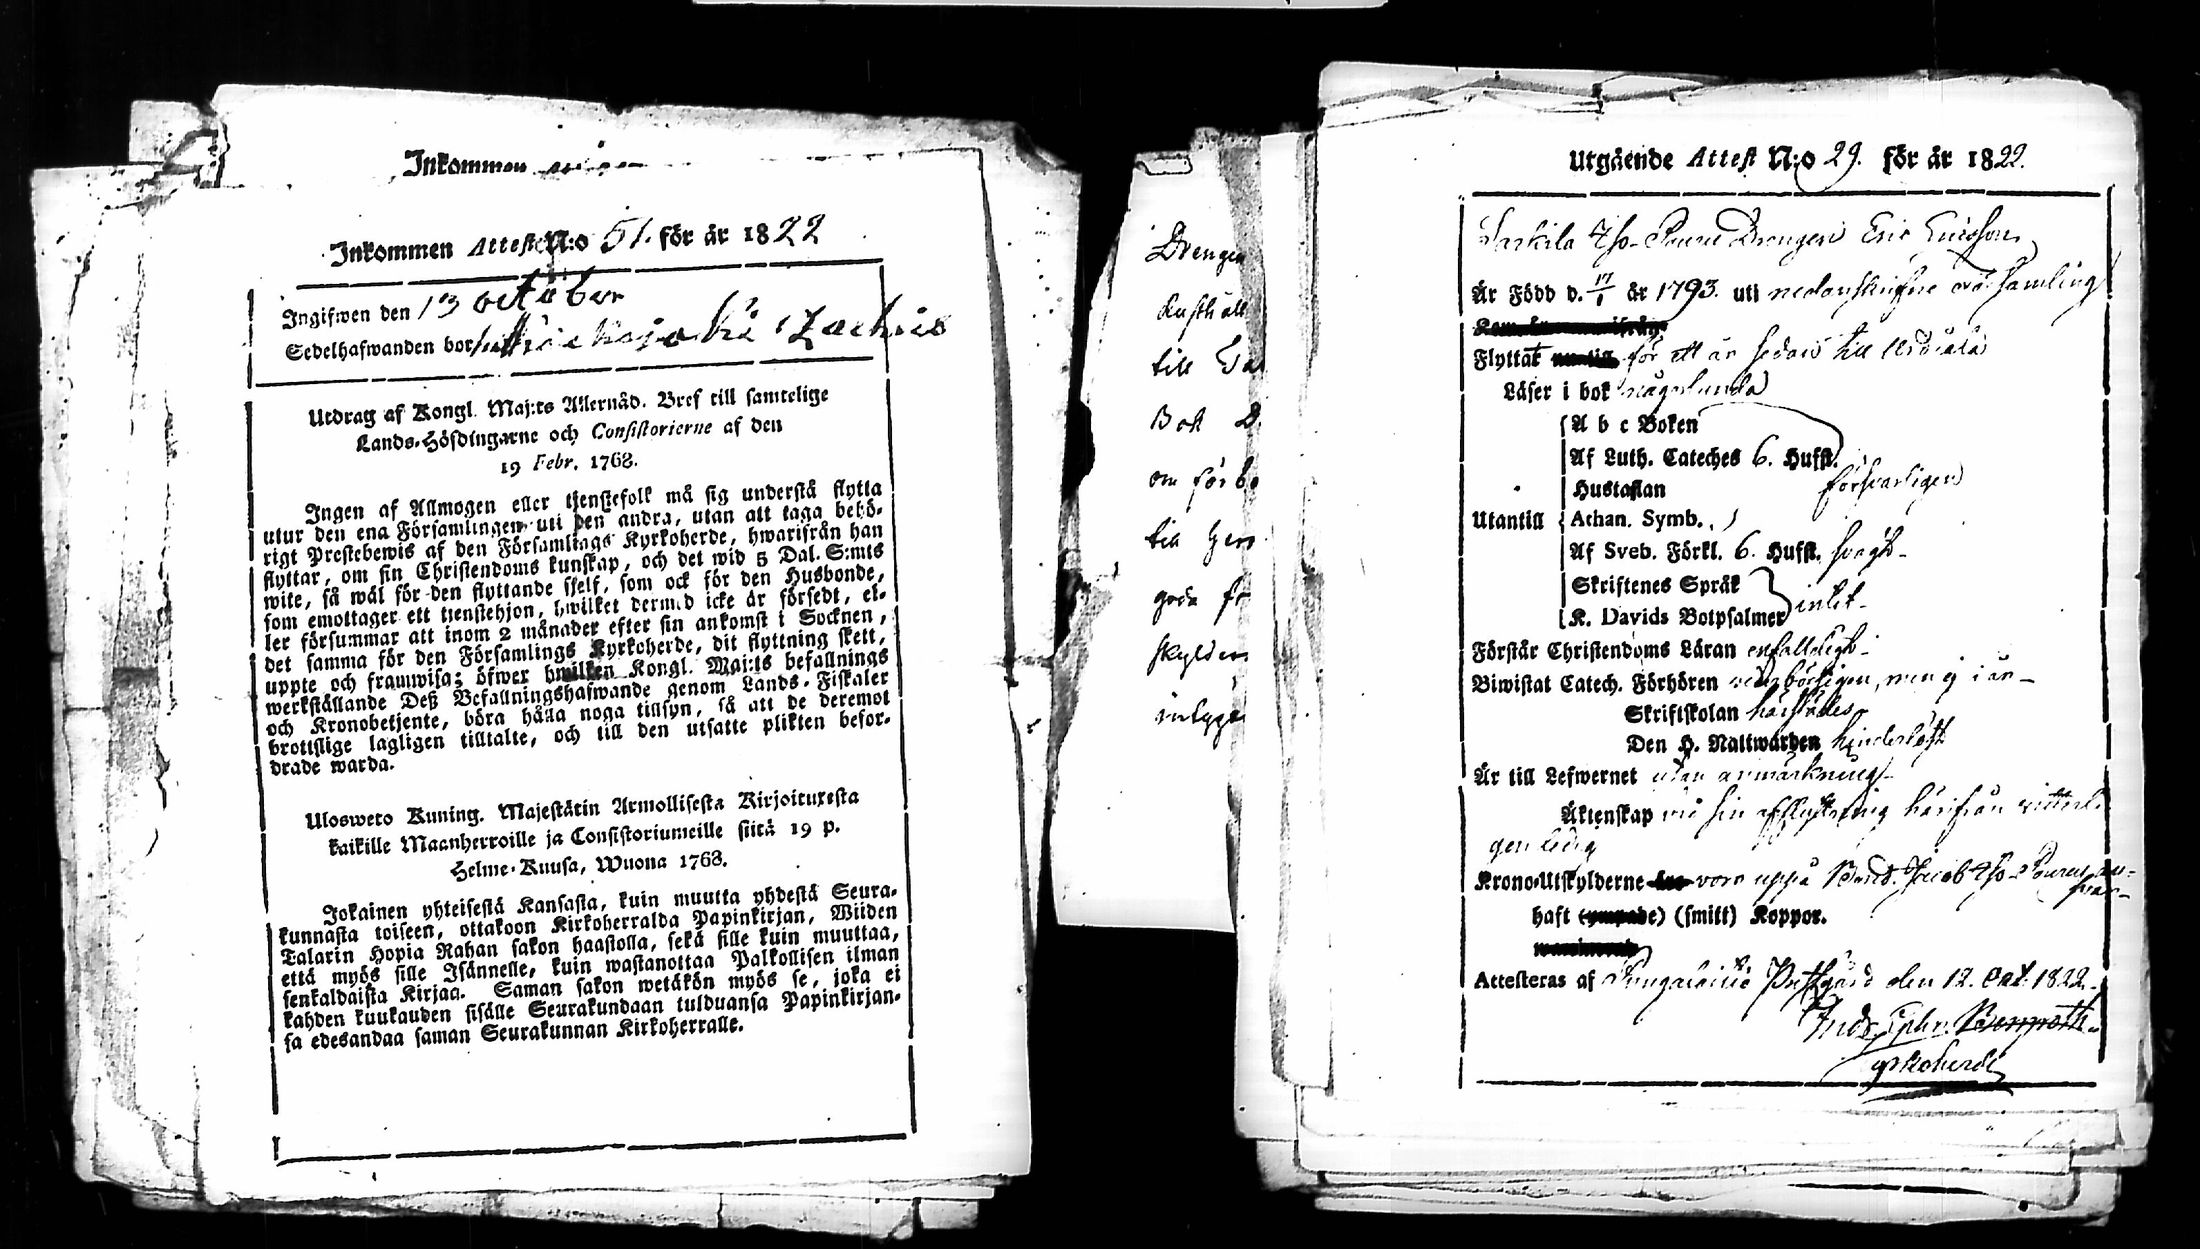 Inkommen
Inkommen Attest N:o 51. för år 1822
Ingifwen den 13 october
Sedelhafwanden bor
Utdrag af Kongl. Maj:ts Allernåd. Bref till samtelige
Lands-Höfdingarne och Consistorierne af den
19 Febr. 1768.
Ingen af Allmogen eller tjenstefolk må sig understå flytta
utur den ena Församlingen uti den andra, utan att taga behö-
rigt Prestebewis af den Församlings Kyrkoherde, hwarifrån han
flyttar, om sin Christendoms kunskap, och det wid 5 Dal. S:mts
wite, så wäl för den flyttande sjelf, som ock för den Husbonde,
som emottager ett tienstehjon, hwilket dermed icke är försedt, el-
ler försummar att inom 2 månader efter sin ankomst i Socknen,
det samma för den Församlings Kyrkoherde, dit flyttning skett,
uppte och framwisa; öfwer hwilken Kongl. Maj:ts befallnings
werkställande Deß Befallningshafwande genom Lands-Fiskaler
och Kronobetjente, böra hålla noga tillsyn, så att de deremot
brottslige lagligen tilltalte, och till den utsatte plikten befor-
drade warda.
Ulosweto Kuning. Majestätin Armollisesta Kirjoituxesta
kaikille Maanherroille ja Consistoriumeille siitä 19 p.
Helme-Kuusa, Wuona 1768.
Jokainen yhteisestä Kansasta, kuin muutta yhdestä Seura-
kunnasta toiseen, ottakoon Kirkoherralda Papinkirjan, Wiiden
Talarin Hopia Rahan sakon haastolla, sekä sille kuin muuttaa,
että myös sille Isännelle, kuin wastanottaa Palkollisen ilman
senkaldaista Kirjaa. Saman sakon wetäkön myös se, joka ei
kahden kuukauden sisälle Seurakundaan tulduansa Papinkirjan-
sa edesandaa saman Seurakunnan Kirkoherralle.
Drengen
till
Bok
om förbe
till
goda
Utgående Attest N:o 29. för år 1822.
Drengen Eric Ericsson
Är Född d. 17/1 år 1793. uti nedanskrifne församling
Flyttat för ett år sedan till
Läser i bok någorlunda
A b c Boken
Af Luth. Cateches 6. Hufst.
försvarligen
Hustaflan
Utantill Athan. Symb.
Af Sveb. Förkl. 6. Hufst. svagt
Skriftenes Språk
K. Davids Botpsalmer intet
Förstår Christendoms Läran enfaldigt
Biwistat Catech. Förhören men ej i år
Skriftskolan härstädes
Den H. Nattwarden hinderlöst
Är till Lefwernet utan anmärkning
Äktenskap vid sin afflyttning härifrån
gen ledig
Krono-Utskylderne voro uppå
haft (smitt) Koppor.
Attesteras af Prestgård den 12. Oct. 1822.